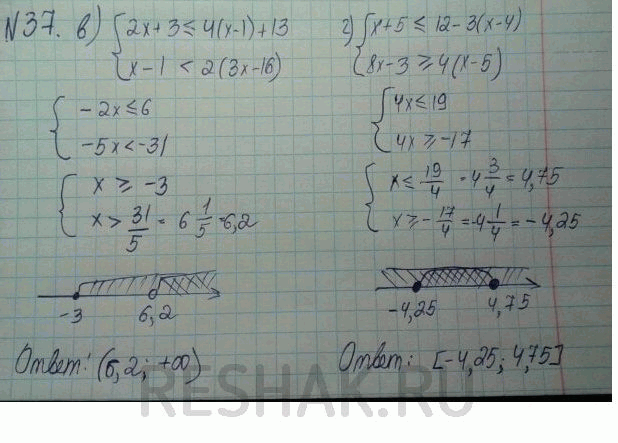 N37. в) { 2x+3 ≤ 4(x-1)+13
x-1 < 2(3x-16)
{ -2x ≤ 6
-5x < -31
{ x ≥ -3
x > 31/5 = 6 1/5 = 6,2
-3 6,2
Ответ: (6,2; +∞)
г) { x+5 ≤ 12-3(x-4)
8x-3 ≥ 4(x-5)
{ 4x ≤ 19
4x ≥ -17
{ x ≤ 19/4 = 4 3/4 = 4,75
x ≥ -17/4 = -4 1/4 = -4,25
-4,25 4,75
Ответ: [-4,25; 4,75]
RESHAK.RU